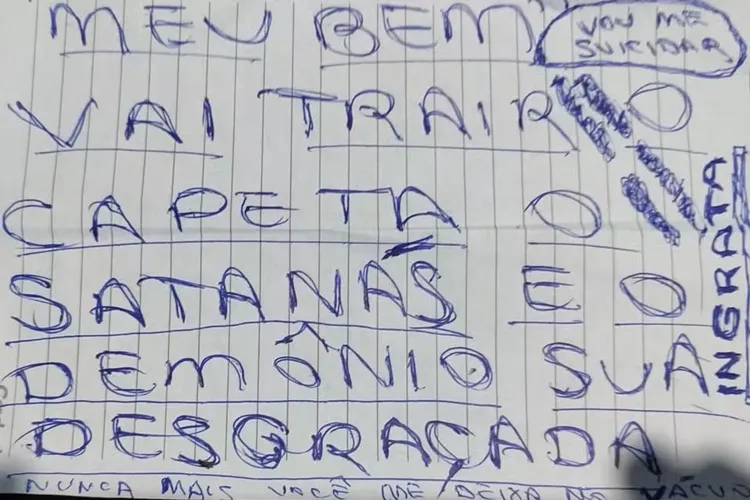 MEU BEM
VOU ME
SUICIDAR
VAI TRAIR O
CAPETA O
SATANÁS E O
DEMÔNIO SUA
DESGRAÇADA
INGRATA
NUNCA MAIS VOCÊ ME DEIXA NO